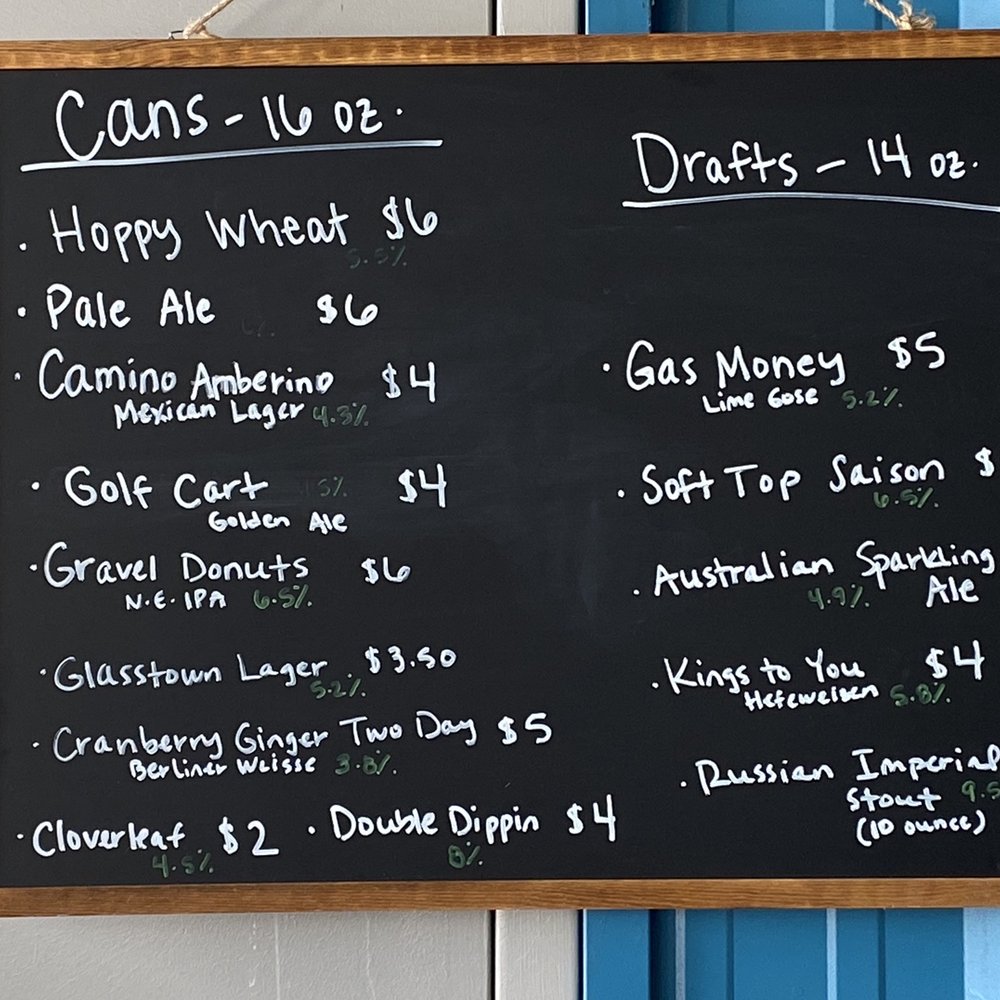 Cans - 16 oz.
· Hoppy Wheat $6
5.5%
· Pale Ale $6
· Camino Amberino $4
Mexican Lager 4.3%
· Golf Cart 5% $4
Golden Ale
· Gravel Donuts $6
N.E. IPA 6.5%
· Glasstown Lager $3.50
5.2%
· Cranberry Ginger Two Day $5
Berliner Weisse 3.8%
· Cloverleaf $2
4.5%
· Double Dippin $4
8%
Drafts - 14 oz.
· Gas Money $5
Lime Gose 5.2%
· Soft Top Saison $
6.5%
· Australian Sparkling
4.9% Ale
· Kings to You $4
Hefeweisen 5.8%
· Russian Imperial
Stout 9.5
(10 ounce)